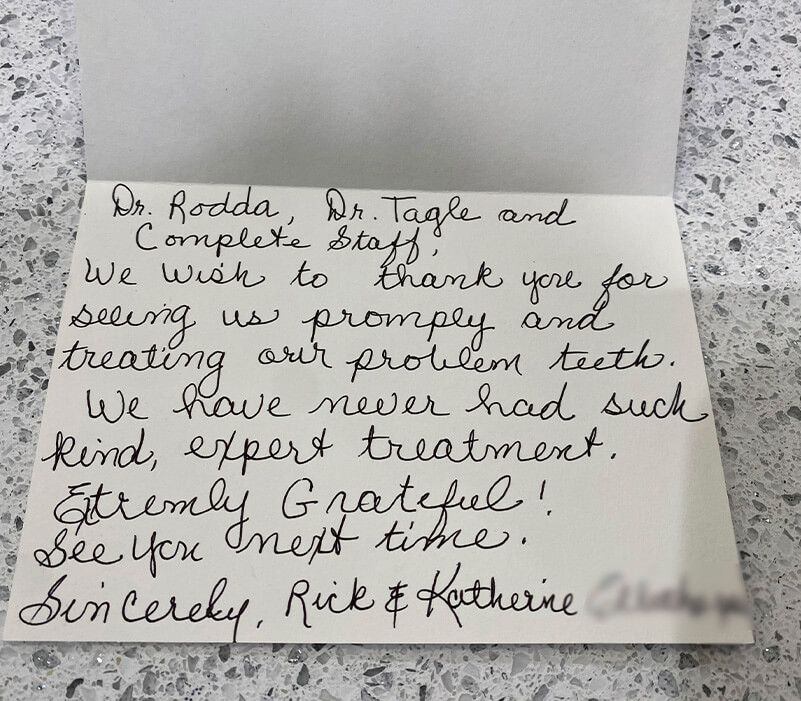 Dr. Rodda, Dr. Tagle and
Complete Staff,
We wish to thank you for
seeing us promply and
treating our problem teeth.
We have never had such
kind, expert treatment.
Extremly Grateful!
See you next time.
Sincerely, Rick & Katherine